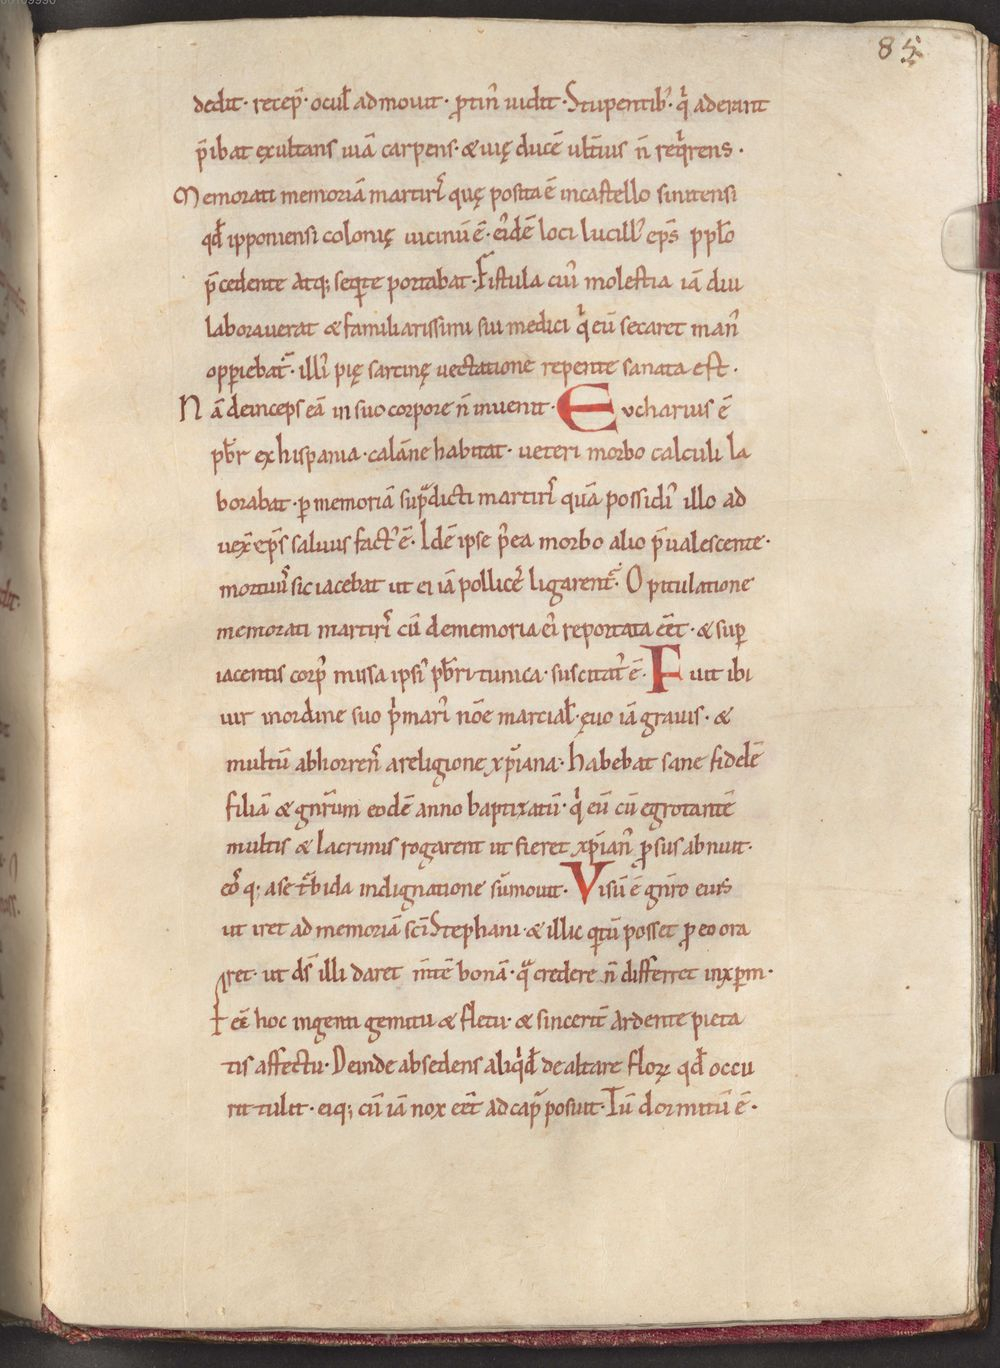 85
dedit · recep̄ · ocul̄ admouit · ꝓtin̄ uidit · Stupentib; qͥ aderant
p̄ibat exultans uiā carpens · & uię ducē ult̄ius n̄ req̊rens ·
Memorati memoriā martirı̄ quę posita ē incastello sinitensi
qd̄ ipponiensi colonię uicinū ē · eı̄dē loci lucill̄ ep̄s pp̄lo
p̄cedente atq; seq̄te portabat · Fistula cuı̄ molestia iā diu
laborauerat & familiarissimi sui medici qͥ eū secaret man̄
opp̄iebat̄ · illı̄ pię sarcinę uectatione repente sanata est ·
Nā deinceps eā in suo corpore n̄ inuenit · Eucharius ē
pb̄r exhispania · calāne habitat · ueteri morbo calculi la
borabat · ꝑ memoriā sup̄dicti martirı̄ quā possidı̄ illo ad
uex̄ ep̄s saluus fact᾽ ē · Idē ipse p̄ea morbo alio p̄ualescente ·
mortuı̄ sic iacebat ut ei iā pollicē ligarent̄ · Opitulatione
memorati martirı̄ cū dememoria eı̄ reportata eēt · & suꝑ
iacentis corp̄ missa ipsı̄ pb̄ri tunica · suscitat᾽ ē · Fuit ibi
uir inordine suo p̄marı̄ nōe marcial̄ · ęuo iā grauis · &
multū abhorren̄ areligione xp̄iana · habebat sane fidelē
filiā & gnr̄um eodē anno baptizatū · qͥ eū cū egrotantē
multis & lacrimis rogarent ut fieret xp̄ian̄ ꝓsus abnuit ·
eōq; ase t̄bida indignatione sūmouit · Visū ē gn̄ro eius
ut iret ad memoriā sc̄i Stephani · & illic qͣtū posset ꝓ eo ora
ret · ut ds̄ illi daret m̄tē bonā · qͣ credere n̄ differret inxpm̄ ·
Fec̄ hoc ingenti gemitu & fletu · & sincerit̄ ardente pieta
tis affectu · Deinde absedens aliqͥd̄ de altare florꝝ qd̄ occu
rit tulit · eiq; cū iā nox eēt ad cap̄ posuit · Tū dormitū ē ·